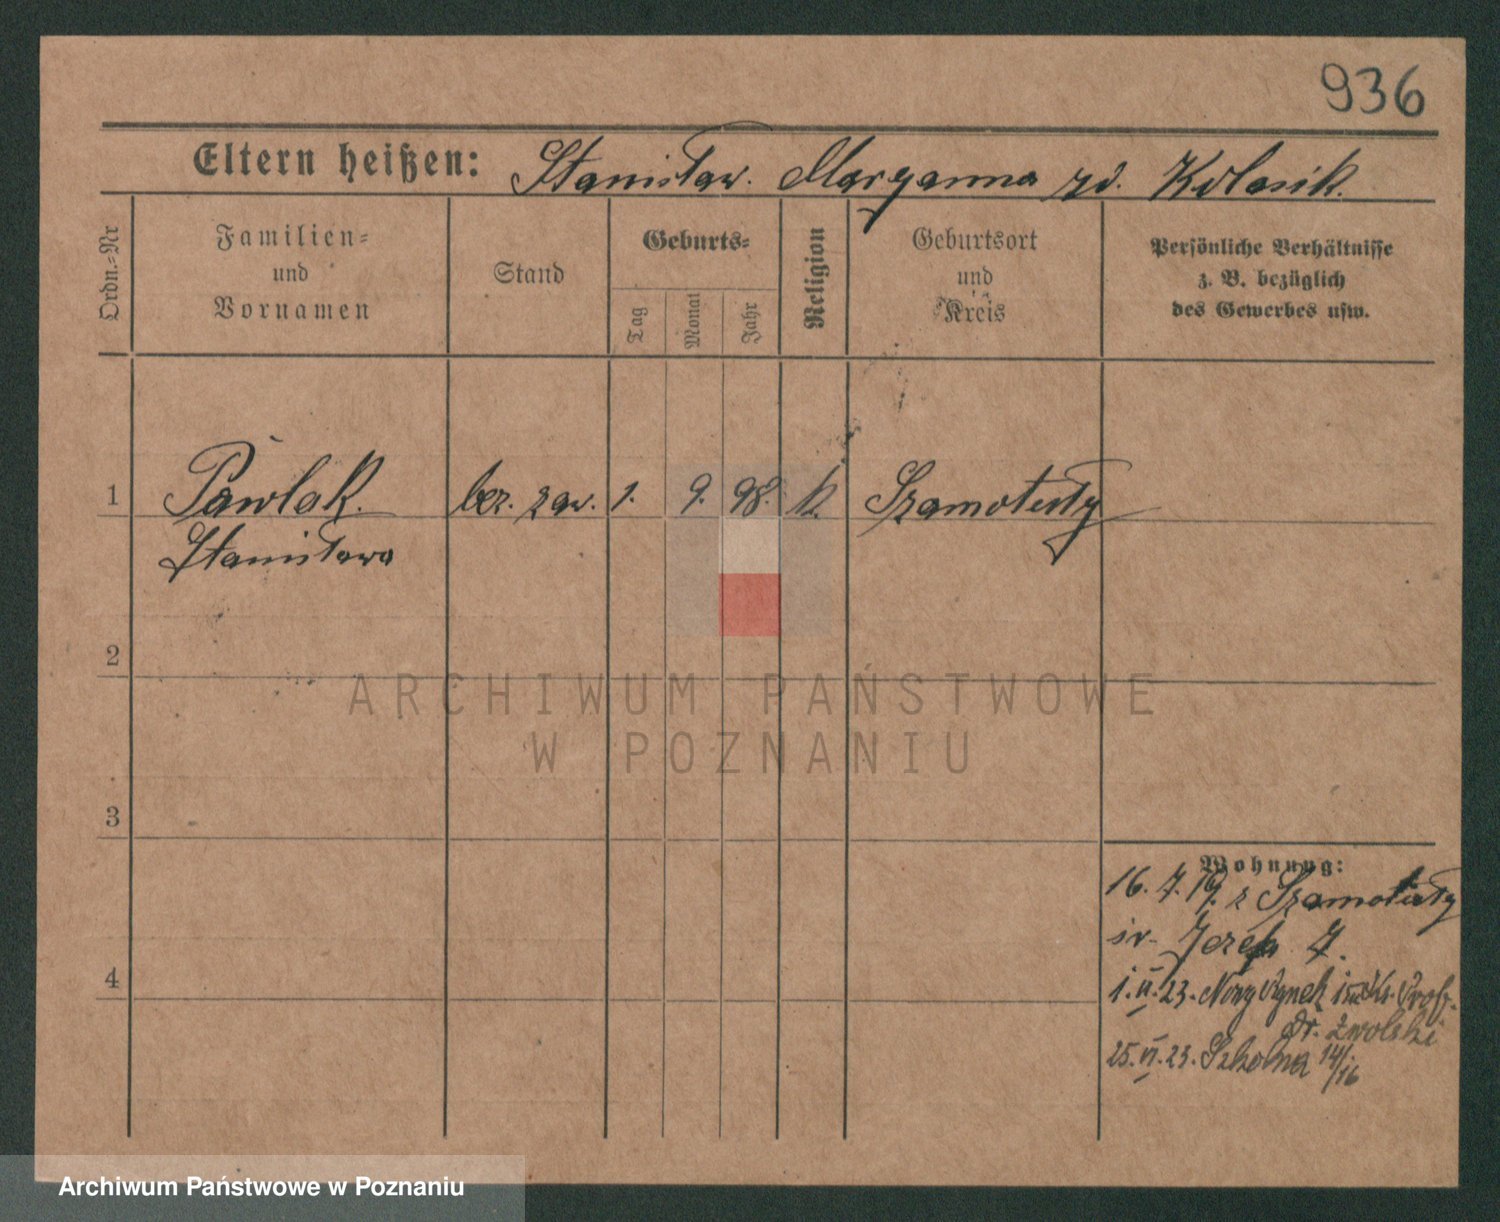 936
Eltern heißen: Stanisław. Maryanna zd. Kolasik.
Ordn.-Nr
Familien-
und
Vornamen
Stand
Geburts-
Tag
Monat
Jahr
Religion
Geburtsort
und
Kreis
Persönliche Verhältnisse
z. B. bezüglich
des Gewerbes usw.
1 Pawlak. bez. zaw. 1. 9. 98. k. Szamotuły
Stanisława
2
ARCHIWUM PAŃSTWOWE
W POZNANIU
3
Wohnung:
16. 7. 19. z Szamotuły
św. Józefa 7.
4
1. II. 23. Nowy Rynek Prof.
Dr. Zwolski
25. VI. 23. Szkolna 14/16
Archiwum Państwowe w Poznaniu